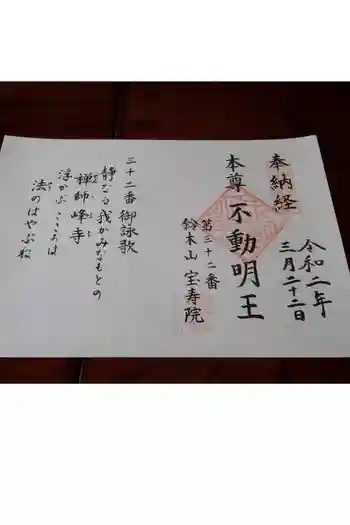 奉納経
令和二年
三月二十二日
本尊 不動明王
第三十二番
鈴木山 宝寿院
三十二番 御詠歌
静かなる我がみなもとの
禅師峰寺
浮かぶ こころは
法のはやぶね